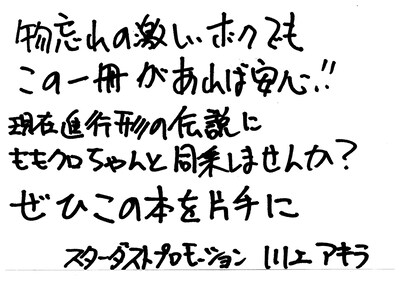 物忘れの激しいボクでも
この一冊があれば安心!!
現在進行形の伝説に
ももクロちゃんと同乗しませんか?
ぜひこの本を片手に
スターダストプロモーション 川上アキラ